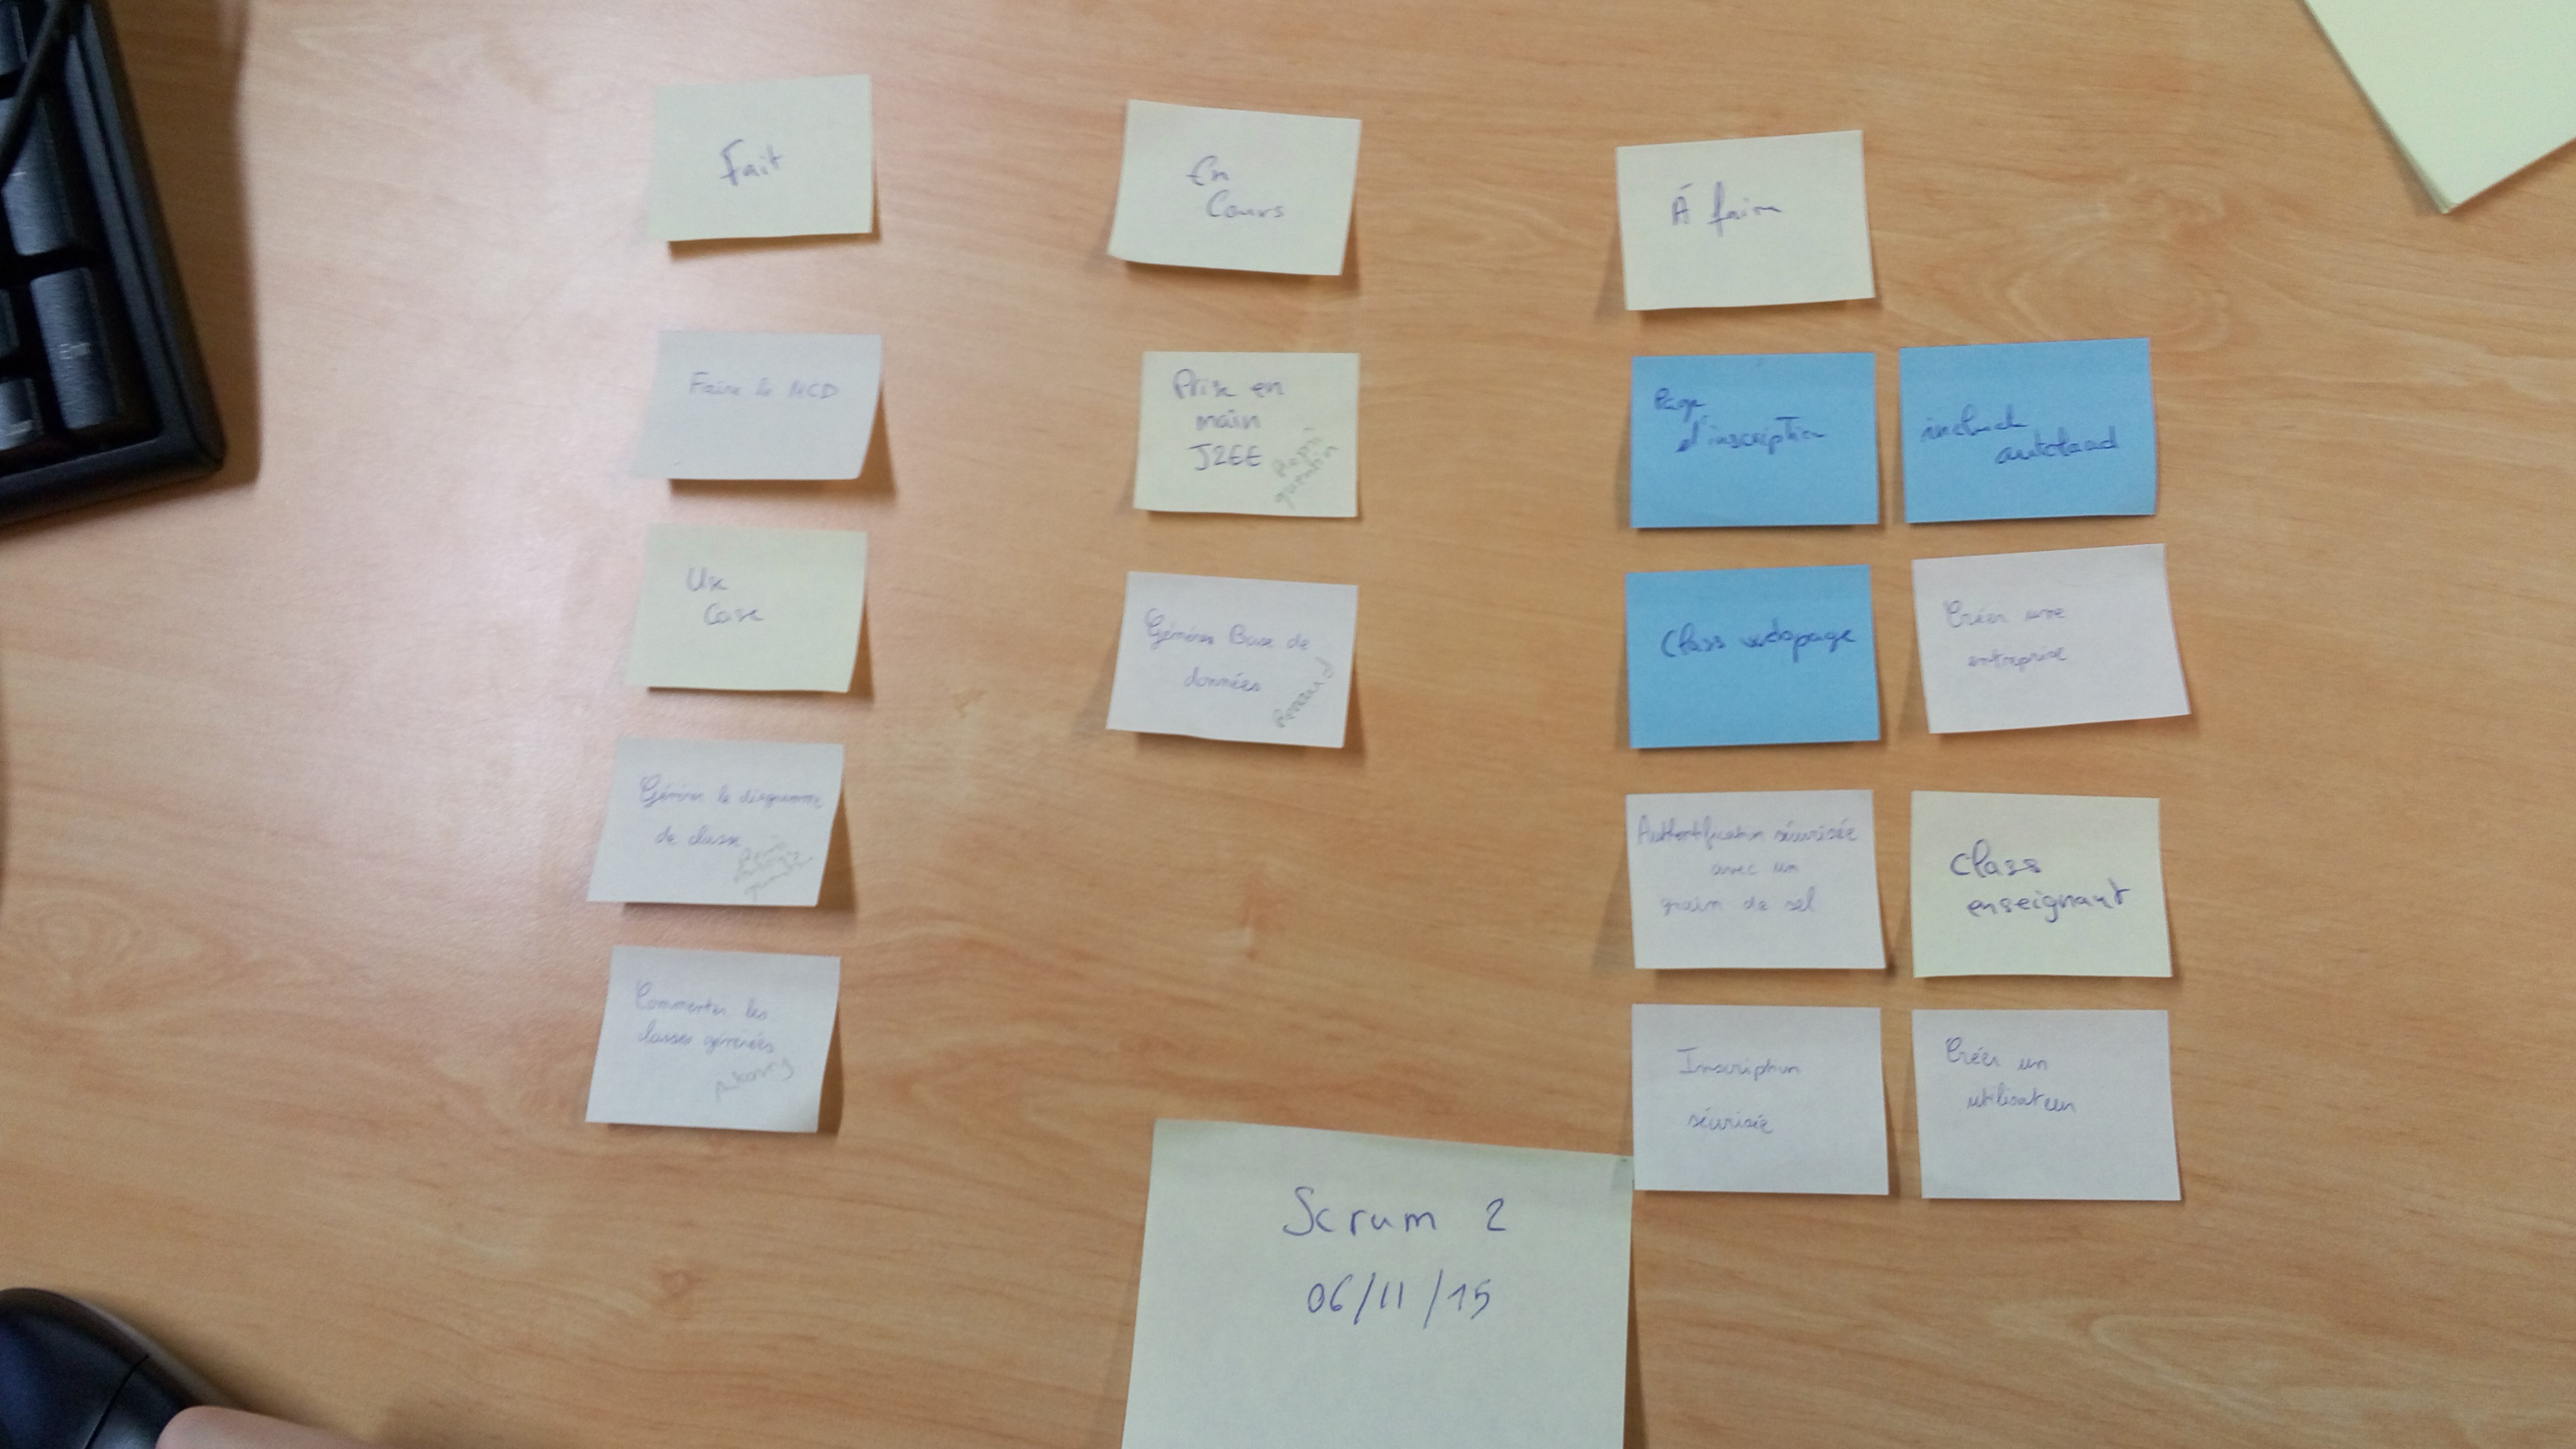 Fait
En
Cours
À faire
Faire le MCD
Use
Case
Générer le diagramme
de classe
Commenter les
classes générées
Prise en
main
J2EE
quentin
Générer Base de
données
Arnaud
Page
d'inscription
include
autoload
Class webpage
Créer une
entreprise
Authentification sécurisée
avec un
grain de sel
Class
enseignant
Inscription
sécurisée
Créer un
utilisateur
Scrum 2
06/11/15